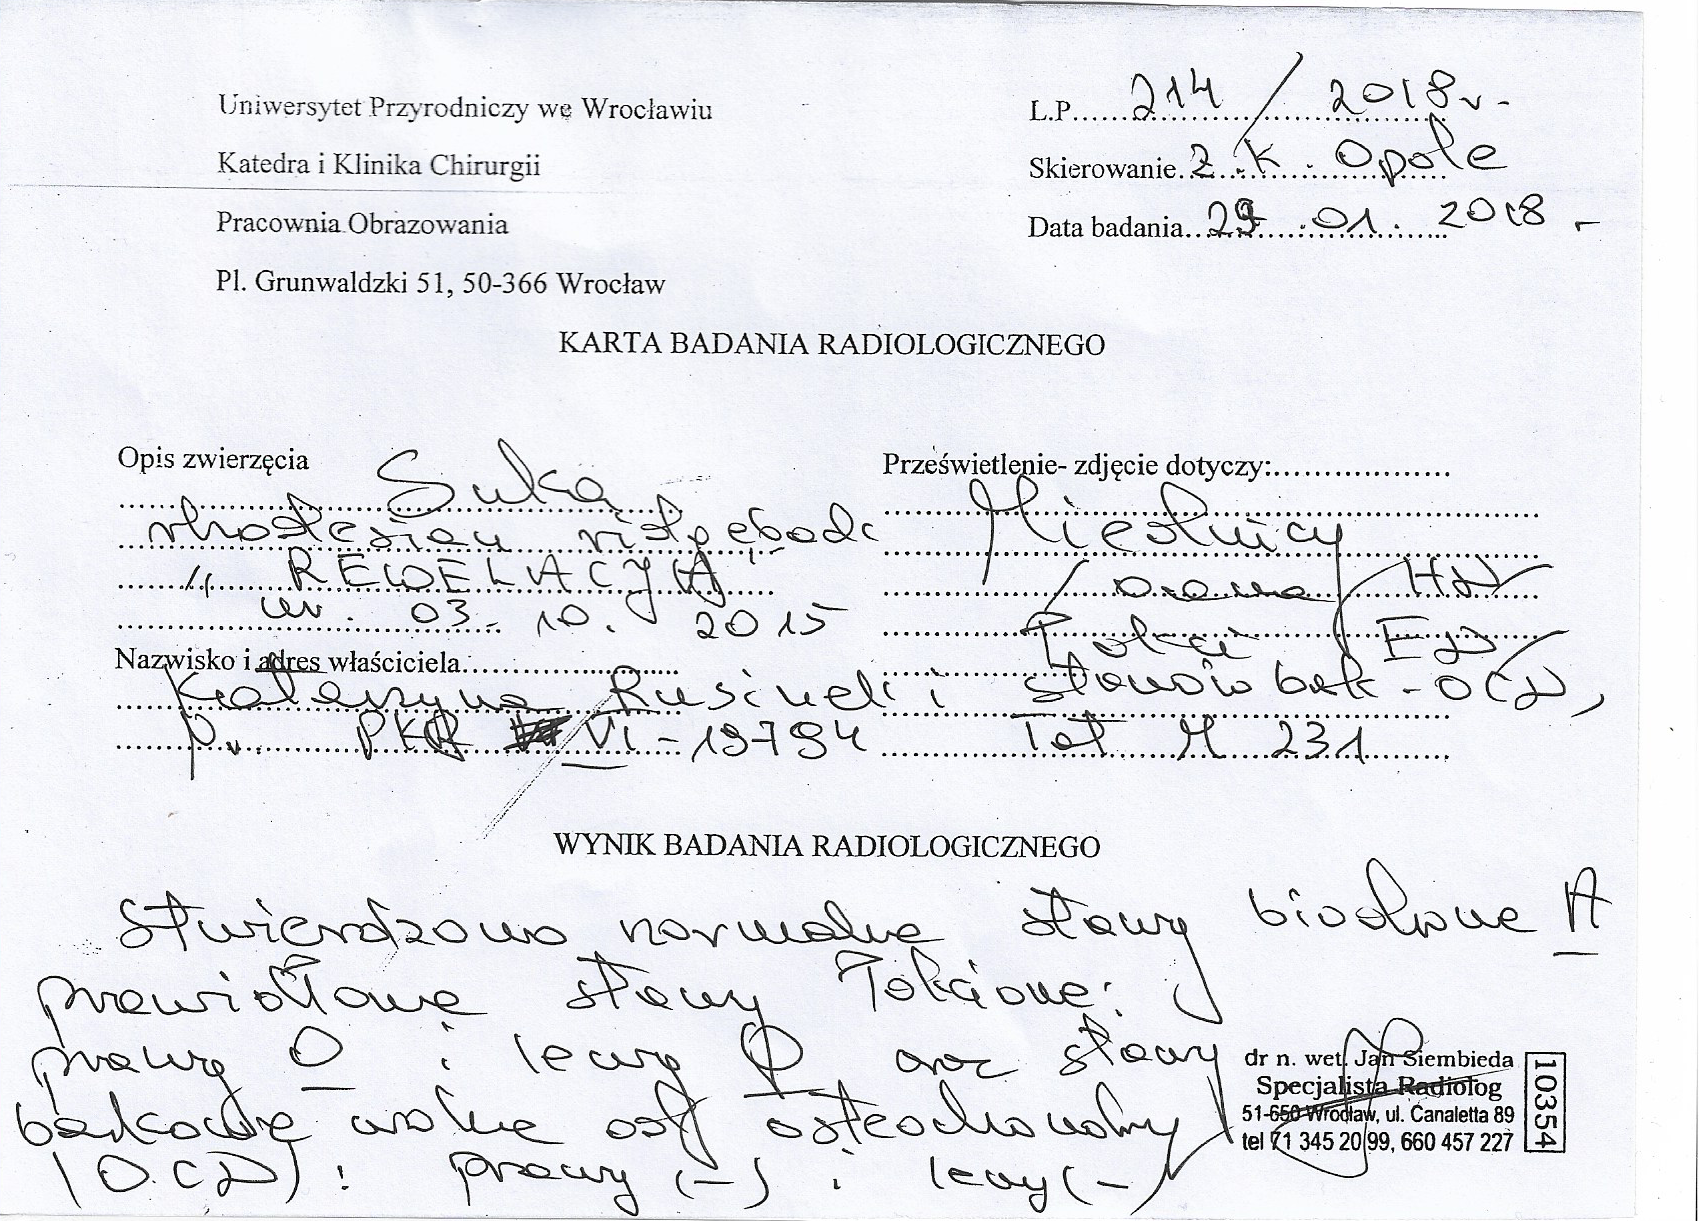 Uniwersytet Przyrodniczy we Wrocławiu
Katedra i Klinika Chirurgii
Pracownia Obrazowania
Pl. Grunwaldzki 51, 50-366 Wrocław
L.P. 214 / 2018 r.
Skierowanie Z.K. Opole
Data badania 29.01.2018
KARTA BADANIA RADIOLOGICZNEGO
Opis zwierzęcia
Suka
rhodesian ridgeback
„REWELACYJA"
ur. 03.10.2015
Nazwisko i adres właściciela
Katarzyna Rusinek
PKR VI-19794
Prześwietlenie- zdjęcie dotyczy:
Miednicy
oraz HD
Łokci ED
i stawów bark - OCD,
Tat M 231
WYNIK BADANIA RADIOLOGICZNEGO
Stwierdzono normalne stawy biodrowe A
prawidłowe stawy łokciowe:
prawy 0 i lewy 0 oraz stawy
barkowe wolne od osteochondrozy
(OCD): prawy (-) i lewy (-)
dr n. wet. Jan Siembieda
Specjalista Radiolog
51-650 Wrocław, ul. Canaletta 89
tel 71 345 20 99, 660 457 227
10354